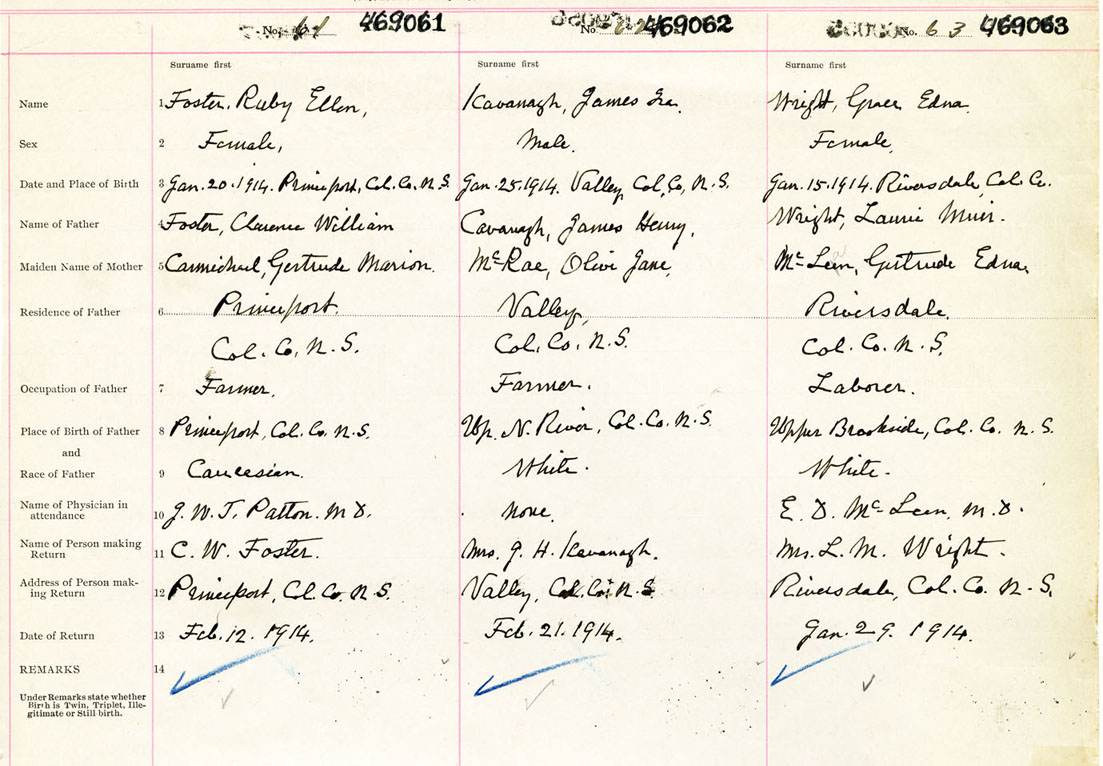 No. 61 469061
No. 62 469062
No. 63 469063
Surname first Surname first Surname first
Name 1 Foster, Ruby Ellen, Kavanagh, James Ira. Wright, Grace Edna.
Sex 2 Female, Male. Female,
Date and Place of Birth 3 Jan. 20. 1914. Princeport, Col. Co. N.S. Jan. 25. 1914. Valley, Col. Co, N.S. Jan. 15. 1914. Riversdale, Col. Co.
Name of Father 4 Foster, Clarence William Cavanagh, James Henry, Wright, Laurie Muir.
Maiden Name of Mother 5 Carmichael, Gertrude Marion. McRae, Olive Jane, McLeen, Gertrude Edna,
Residence of Father 6 Princeport. Valley, Riversdale,
Col. Co, N.S. Col. Co, N.S. Col. Co. N.S,
Occupation of Father 7 Farmer. Farmer. Laborer.
Place of Birth of Father 8 Princeport, Col. Co. N.S. Up. N. River, Col. Co. N.S. Upper Brookside, Col. Co. N.S.
and
Race of Father 9 Caucesian. White. White.
Name of Physician in
attendance 10 J. W. T. Patton. M D. None. E. D. McLeen, M.D.
Name of Person making
Return 11 C. W. Foster. Mrs. J. H. Kavanagh. Mrs. L. M. Wright.
Address of Person mak-
ing Return 12 Princeport, Col. Co. N.S. Valley, Col. Co. N.S. Riversdale, Col. Co. N.S.
Date of Return 13 Feb. 12. 1914. Feb. 21. 1914. Jan. 29. 1914.
REMARKS 14
Under Remarks state whether
Birth is Twin, Triplet, Ille-
gitimate or Still birth.